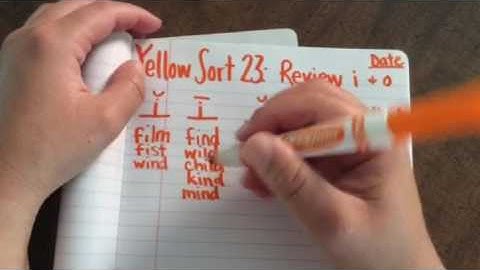 Yellow Sort 23: Review i + o
Date
ĭ ī
film find
fist wild
wind child
kind
mind